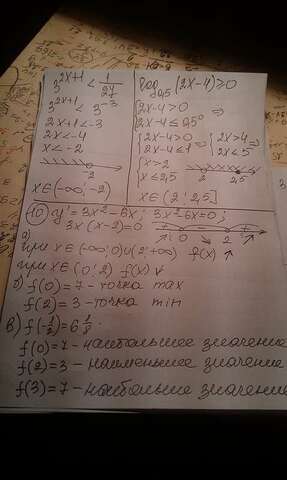 3^{2x+1} < 1/27
3^{2x+1} < 3^{-3}
2x+1 < -3
2x < -4
x < -2
-2
x∈(-∞; -2)
log_{0,5} (2x-4) ≥ 0
{2x-4 > 0
2x-4 ≤ 0,5° ⇒
{2x-4 > 0
2x-4 ≤ 1 ⇒ {2x > 4
2x ≤ 5
{x > 2
x ≤ 2,5
2 2,5
x∈(2; 2,5]
10 y' = 3x² - 6x; 3x² - 6x = 0;
3x (x-2) = 0
+ - +
0 2
а)
при x∈(-∞; 0)∪(2; +∞) f(x) ↑
при x∈(0; 2) f(x) ↓
б) f(0) = 7 - точка max
f(2) = 3 - точка min
в) f(-1/2) = 6 1/8
f(0) = 7 - наибольшее значение
f(2) = 3 - наименьшее значение
f(3) = 7 - наибольшее значение